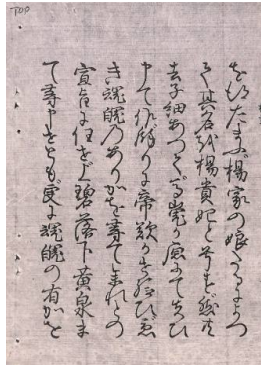 TOP
を得たまふ楊家の娘たるによつ
て其名を楊貴妃と号す
去子細あつて馬嵬が原にて失ひ
申て候餘りに帝歎かせ給ひ急
き魂魄のありかを尋て参れとの
宣旨に任せ上碧落下黄泉ま
て尋申せとも更に魂魄の有かを